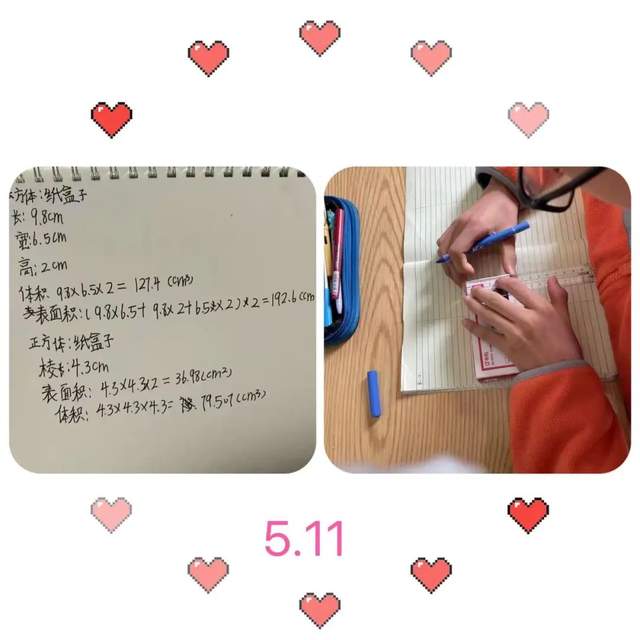 方体:纸盒子
长: 9.8cm
宽:6.5cm
高:2cm
体积 9.8×6.5×2= 127.4 (cm³)
表面积:(9.8×6.5+ 9.8×2+6.5×2)×2=192.6(cm
正方体:纸盒子
棱长:4.3cm
表面积: 4.3×4.3×2=36.98(cm²)
体积: 4.3×4.3×4.3= 79.507(cm³)
5.11